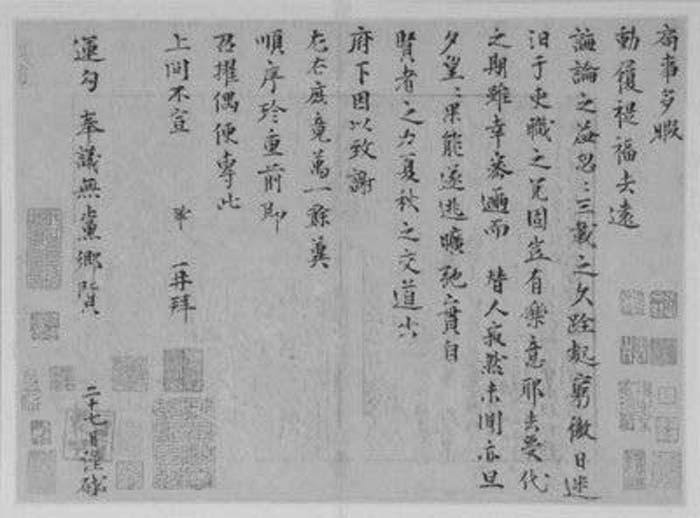 局事多暇
動履禔福去遠
誨論之益忽〻三載之久跧處窮徼日迷
汩于吏職之冗固豈有樂意耶去受代
之期雖幸密邇而 替人寂然未聞亦旦
夕望〻果能遂逃曠弛實自
賢者之力夏秋之交道出
府下因以致謝
左右庶竟萬一餘冀
順序珍重前即
召擢偶便專此
上問不宣 鞏 再拜
運勾奉議無黨鄉賢 二十七日謹啓